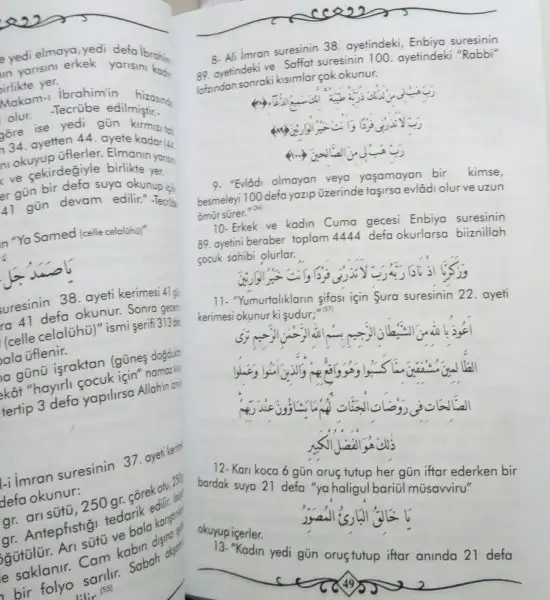 e yedi elmaya, yedi defa İbrahim
ın yarısını erkek yarısını kadın
birlikte yer.
Makam-ı İbrahim'in hizasında
olur. -Tecrübe edilmiştir.-
göre ise yedi gün kırmızı
34. ayetten 44. ayete kadar
nı okuyup üflerler. Elmanın yarısını
ve çekirdeğiyle birlikte yer.
er gün bir defa suya okunup
41 gün devam edilir." -Tecrübe
n "Ya Samed (celle celalühü)"
يَا صَمَدُ جَلَّ
suresinin 38. ayeti kerimesi 41
ra 41 defa okunur. Sonra
(celle celalühü)" ismi şerifi 313
bala üflenir.
a günü işraktan (güneş doğduktan
ekât "hayırlı çocuk için" namaz
tertip 3 defa yapılırsa Allah'ın
l-i İmran suresinin 37. ayeti
defa okunur:
gr. arı sütü, 250 gr. çörek otu, 250
gr. Antepfıstığı tedarik edilir.
öğütülür. Arı sütü ve bala
e saklanır. Cam kabın dışına
bir folyo sarılır. Sabah
(55)
8- Ali İmran suresinin 38. ayetindeki, Enbiya suresinin
89. ayetindeki ve Saffat suresinin 100. ayetindeki "Rabbi"
lafzından sonraki kısımlar çok okunur.
رَبِّ هَبْ لِي مِنْ لَدُنْكَ ذُرِّيَّةً طَيِّبَةً اِنَّكَ سَمِيعُ الدُّعَاءِ ﴿٣٨﴾
رَبِّ لَا تَذَرْنِي فَرْدًا وَاَنْتَ خَيْرُ الْوَارِثِينَ ﴿٨٩﴾
رَبِّ هَبْ لِي مِنَ الصَّالِحِينَ ﴿١٠٠﴾
9. "Evlâdı olmayan veya yaşamayan bir kimse,
besmeleyi 100 defa yazıp üzerinde taşırsa evlâdı olur ve uzun
ömür sürer."(56)
10- Erkek ve kadın Cuma gecesi Enbiya suresinin
89. ayetini beraber toplam 4444 defa okurlarsa biiznillah
çocuk sahibi olurlar.
وَزَكَرِيَّا اِذْ نَادَى رَبَّهُ رَبِّ لَا تَذَرْنِي فَرْدًا وَاَنْتَ خَيْرُ الْوَارِثِينَ
11- "Yumurtalıkların şifası için Şura suresinin 22. ayeti
kerimesi okunur ki şudur;"(57)
اَعُوذُ بِاللهِ مِنَ الشَّيْطَانِ الرَّجِيمِ بِسْمِ اللهِ الرَّحْمٰنِ الرَّحِيمِ تَرَى
الظَّالِمِينَ مُشْفِقِينَ مِمَّا كَسَبُوا وَهُوَ وَاقِعٌ بِهِمْ وَالَّذِينَ اٰمَنُوا وَعَمِلُوا
الصَّالِحَاتِ فِي رَوْضَاتِ الْجَنَّاتِ لَهُمْ مَا يَشَاؤُونَ عِنْدَ رَبِّهِمْ
ذٰلِكَ هُوَ الْفَضْلُ الْكَبِيرُ
12- Karı koca 6 gün oruç tutup her gün iftar ederken bir
bardak suya 21 defa "ya haligul bariül müsavviru"
يَا خَالِقُ الْبَارِئُ الْمُصَوِّرُ
okuyup içerler.
13- "Kadın yedi gün oruç tutup iftar anında 21 defa
49